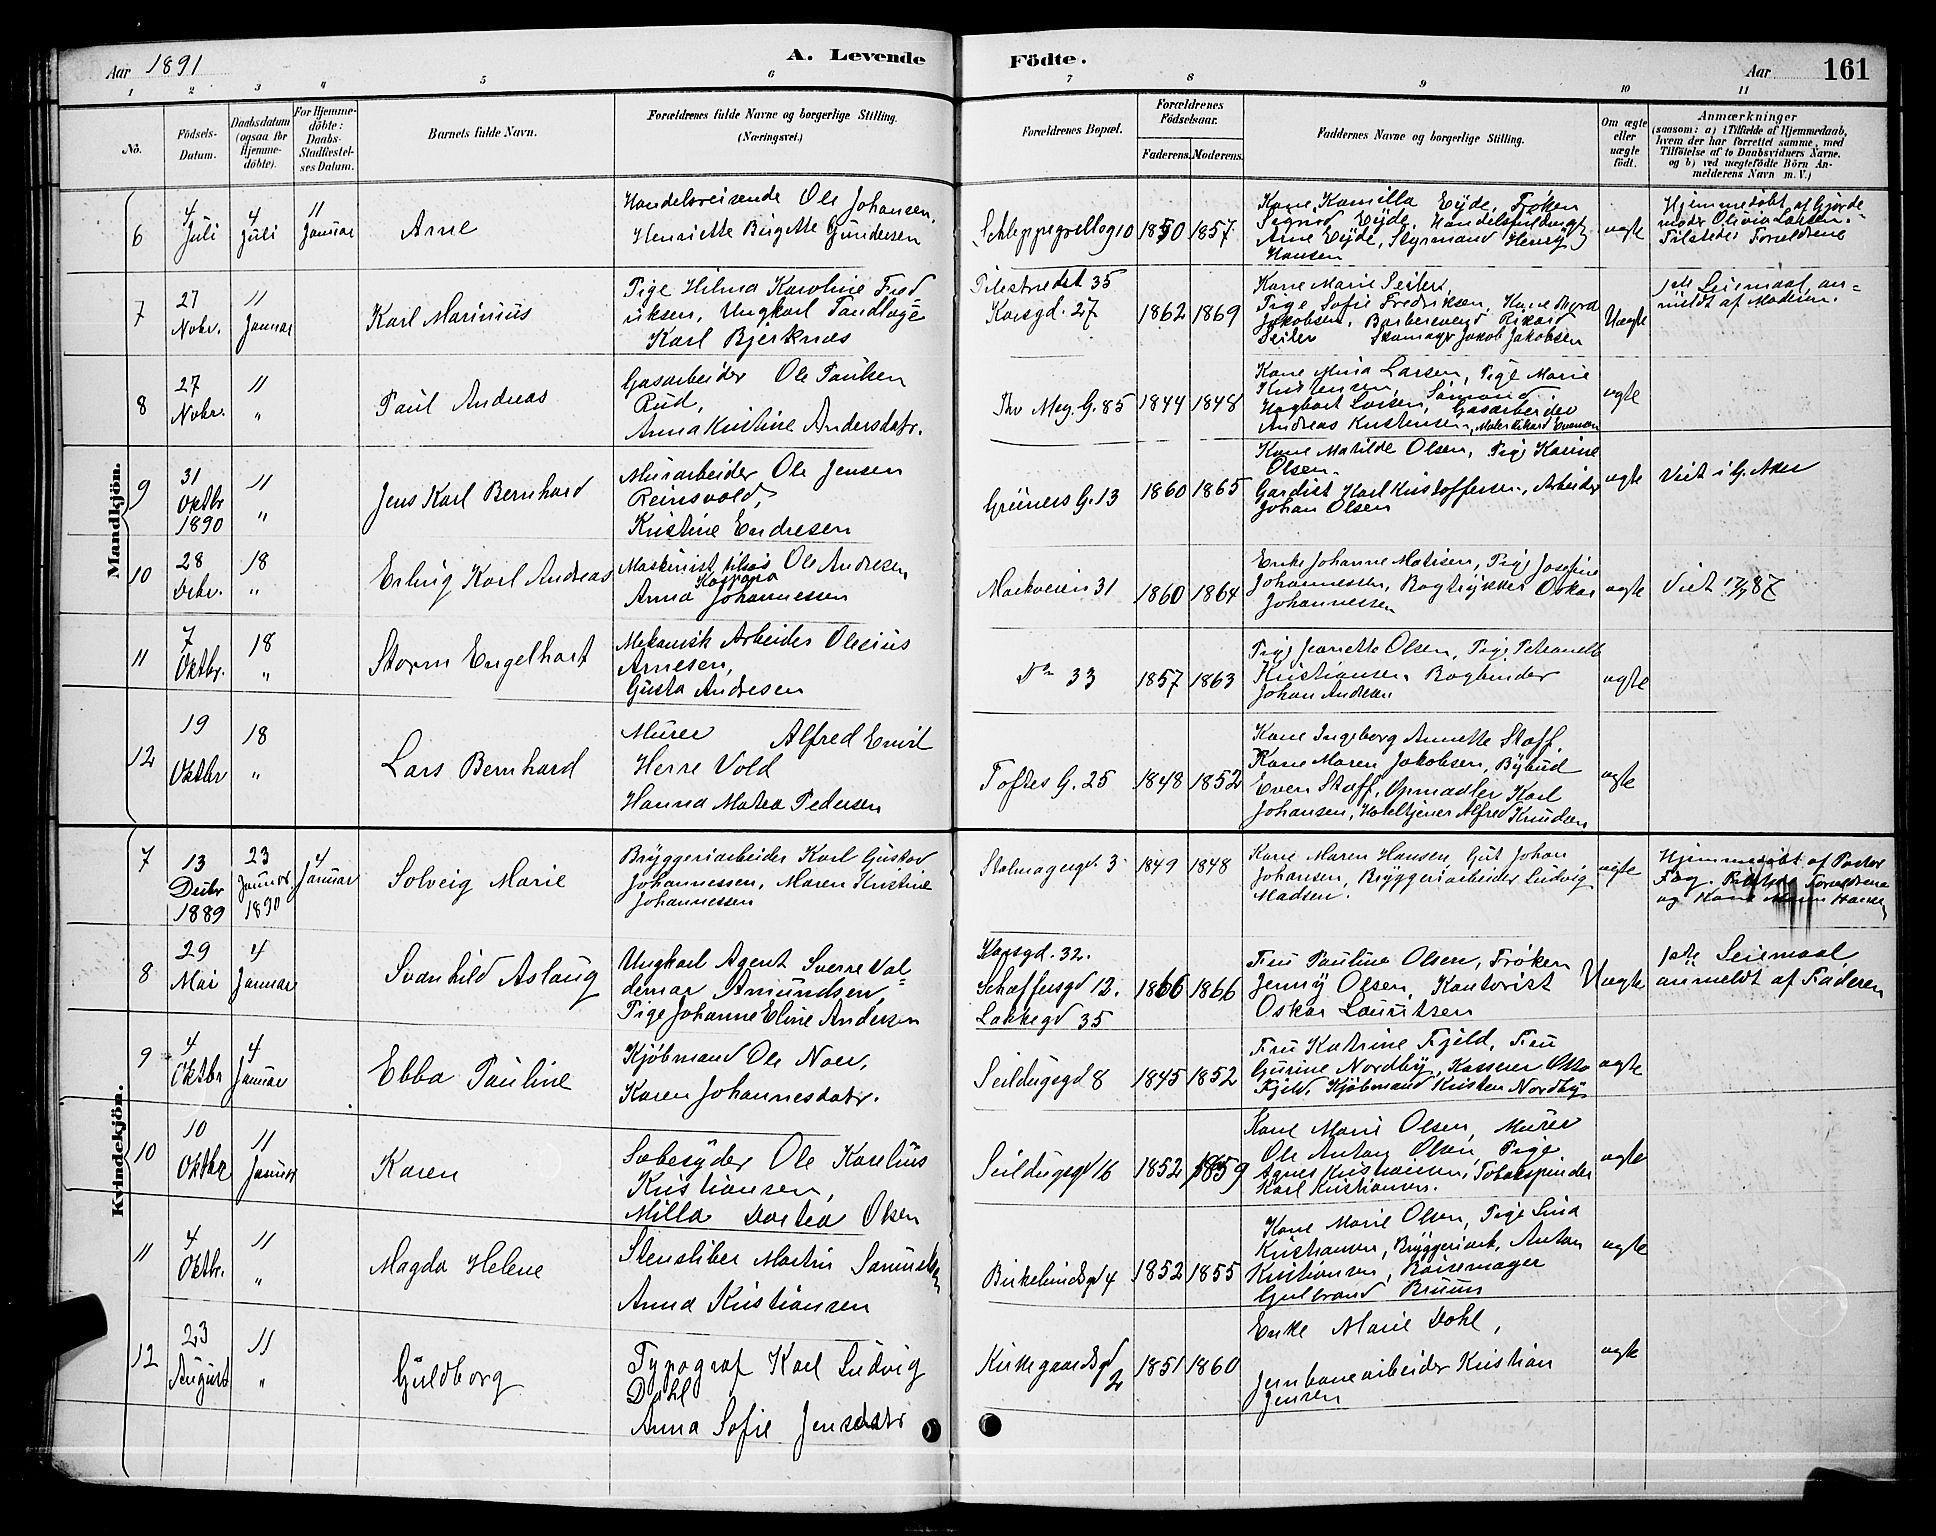 Aar 1891
A. Levende
Födte.
Aar
161
1 2 3 4 5 6 7 8 9 10 11
No.
Födsels-Datum.
Daabsdatum (ogsaa for Hjemme-döbte).
For Hjemme-döbte: Daabs-Stadfæstel-ses Datum.
Barnets fulde Navn.
Forældrenes fulde Navne og borgerlige Stilling. (Næringsvei.)
Forældrenes Bopæl.
Forældrenes Födselsaar.
Faderens. Moderens.
Faddernes Navne og borgerlige Stilling.
Om ægte eller uægte födt.
Anmærkninger
(saasom: a) i Tilfælde af Hjemmedaab, hvem der har forrettet samme, med Tilföielse af to Daabsvidners Navne. og b) ved uægtefödte Börn An-melderens Navn m. V.)
Mandkjön.
6
4 Juli
4 Juli
11 Januar
Arne
Handelsreisende Ole Johansen,
Henriette Birgitte Gundersen
Schleppegrellsg 10
1850 1857
Kone Kamilla Eyde, Frøken
Sigrid Eyde, Handelsfuldmægt
Arne Eyde, Styrmand Henry
Hansen
ægte
Hjemmedøbt af Gjorde-
moder Olivia Larsen.
Tilstede: Forældrene
7
27 Novbr.
11 Januar
Karl Marinius
Pige Hilma Karoline Fred
riksen, Ungkarl Tandlæge
Karl Bjerknæs
Pilestrædet 35
Korsgd. 27
1862 1869
Kone Marie Seiler,
Pige Sofie Fredriksen, Kone
Jakobsen, Barbersvend Rikard
Seiler Skomager Jakob Jakobsen
Uægte
1ste Leiermaal, an-
meldt af Moderen.
8
27 Novbr.
11 "
Paul Andreas
Gasarbeider Ole Paulsen
Rud,
Anna Kristine Andersdatr.
Thv Mey. G. 85
1844 1848
Kone Mina Larsen, Pige Marie
Kristensen, Sømand
Hagbart Larsen, Gasarbeider
Andreas Kristensen, Maler Rikard
ægte
9
31 Oktbr 1890
11 "
Jens Karl Bernhard
Murarbeider Ole Jensen
Reinsvold,
Kristine Endresen
Grüners G. 13
1860 1865
Kone Matilde Olsen, Pige Karine
Olsen.
Gardist Karl Kristoffersen, Arbeider
Johan Olsen
ægte
Viet i G. Aker
10
28 Debr.
18 "
Erling Karl Andreas
Maskinist tilsøs Ole Andresen
Anna Kaspara Johannessen
Markveien 31
1860 1864
Enke Johanne Matisen, Pige Josefine
Johannessen, Bogtrykker Oskar
Johannessen
ægte
11
7 Oktbr.
18 "
Storm Engelhart
Mekanisk Arbeider Olesius
Arnesen,
Gusta Andresen
Do 33
1857 1863
Pige Jeanette Olsen, Pige Petronelle
Kristiansen, Bogbinder
Johan Andresen
ægte
12
19 Oktbr
18 "
Lars Bernhard
Murer Alfred Emil
Herre Vold
Hanna Matea Pedersen
Toftes G. 25
1848 1852
Kone Ingeborg Annette Staff,
Kone Maren Jakobsen, Bybud
Even Staff, Opmaaler Karl
Johansen, Hoteltjener Alfred Knudsen
ægte
Kvindekjön.
7
13 Decbr 1889
23 Januar 1890
4 Januar
Solveig Marie
Bryggeriarbeider Karl Gustav
Johannessen, Maren Kristine
Johannessen
Stolmagergd. 3
1849 1848
Kone Maren Hansen, Gut Johan
Johansen, Bryggeriarbeider Ludvig
Madsen.
ægte
Hjemmedøbt af Pastor
Fog. Forældrene
og Kone Maren Hansen
8
29 Mai
4 Januar
Svanhild Aslaug
Ungkarl Agent Sverre Val-
demar Amundsen,
Pige Johanne Eline Andersen
Korsgd. 32.
Schaffersgd 13.
Lakkegd 35
1866 1866
Fru Pauline Olsen, Frøken
Jenny Olsen, Kontorist
Oskar Lauritsen
Uægte
1ste Leiermaal,
anmeldt af Faderen
9
4 Oktbr
4 Januar
Ebba Pauline
Kjøbmand Ole Noer,
Karen Johannesdatr.
Seildugsgd 8
1845 1852
Fru Katrine Fjeld, Fru
Gurine Nordby, Kasserer Otto
Fjeld, Kjøbmand Kristen Nordby
ægte
10
10 Oktbr
11 Januar
Karen
Sæbesyder Ole Karelius
Kristiansen,
Milla Dortea Olsen
Seildugsgd 16
1852 1859
Kone Marie Olsen, Murer
Ole Anton Olsen, Pige
Agnes Kristiansen, Tobakspinder
Karl Kristiansen.
ægte
11
4 Oktbr.
11 "
Magda Helene
Stensliber Martin Samuelsen
Anna Kristiansen
Birkelundsgd 4
1852 1855
Kone Marie Olsen, Pige Lina
Kristiansen, Bryggeriarb. Anton
Kristiansen,
Gulbrand Bruun
ægte
12
23 August
11 "
Guldborg
Typograf Karl Ludvig
Dahl
Anna Sofie Jensdatr
Kirkegaardsgd 2
1851 1860
Enke Marie Dahl,
Jernbanearbeider Kristian
Jensen
ægte